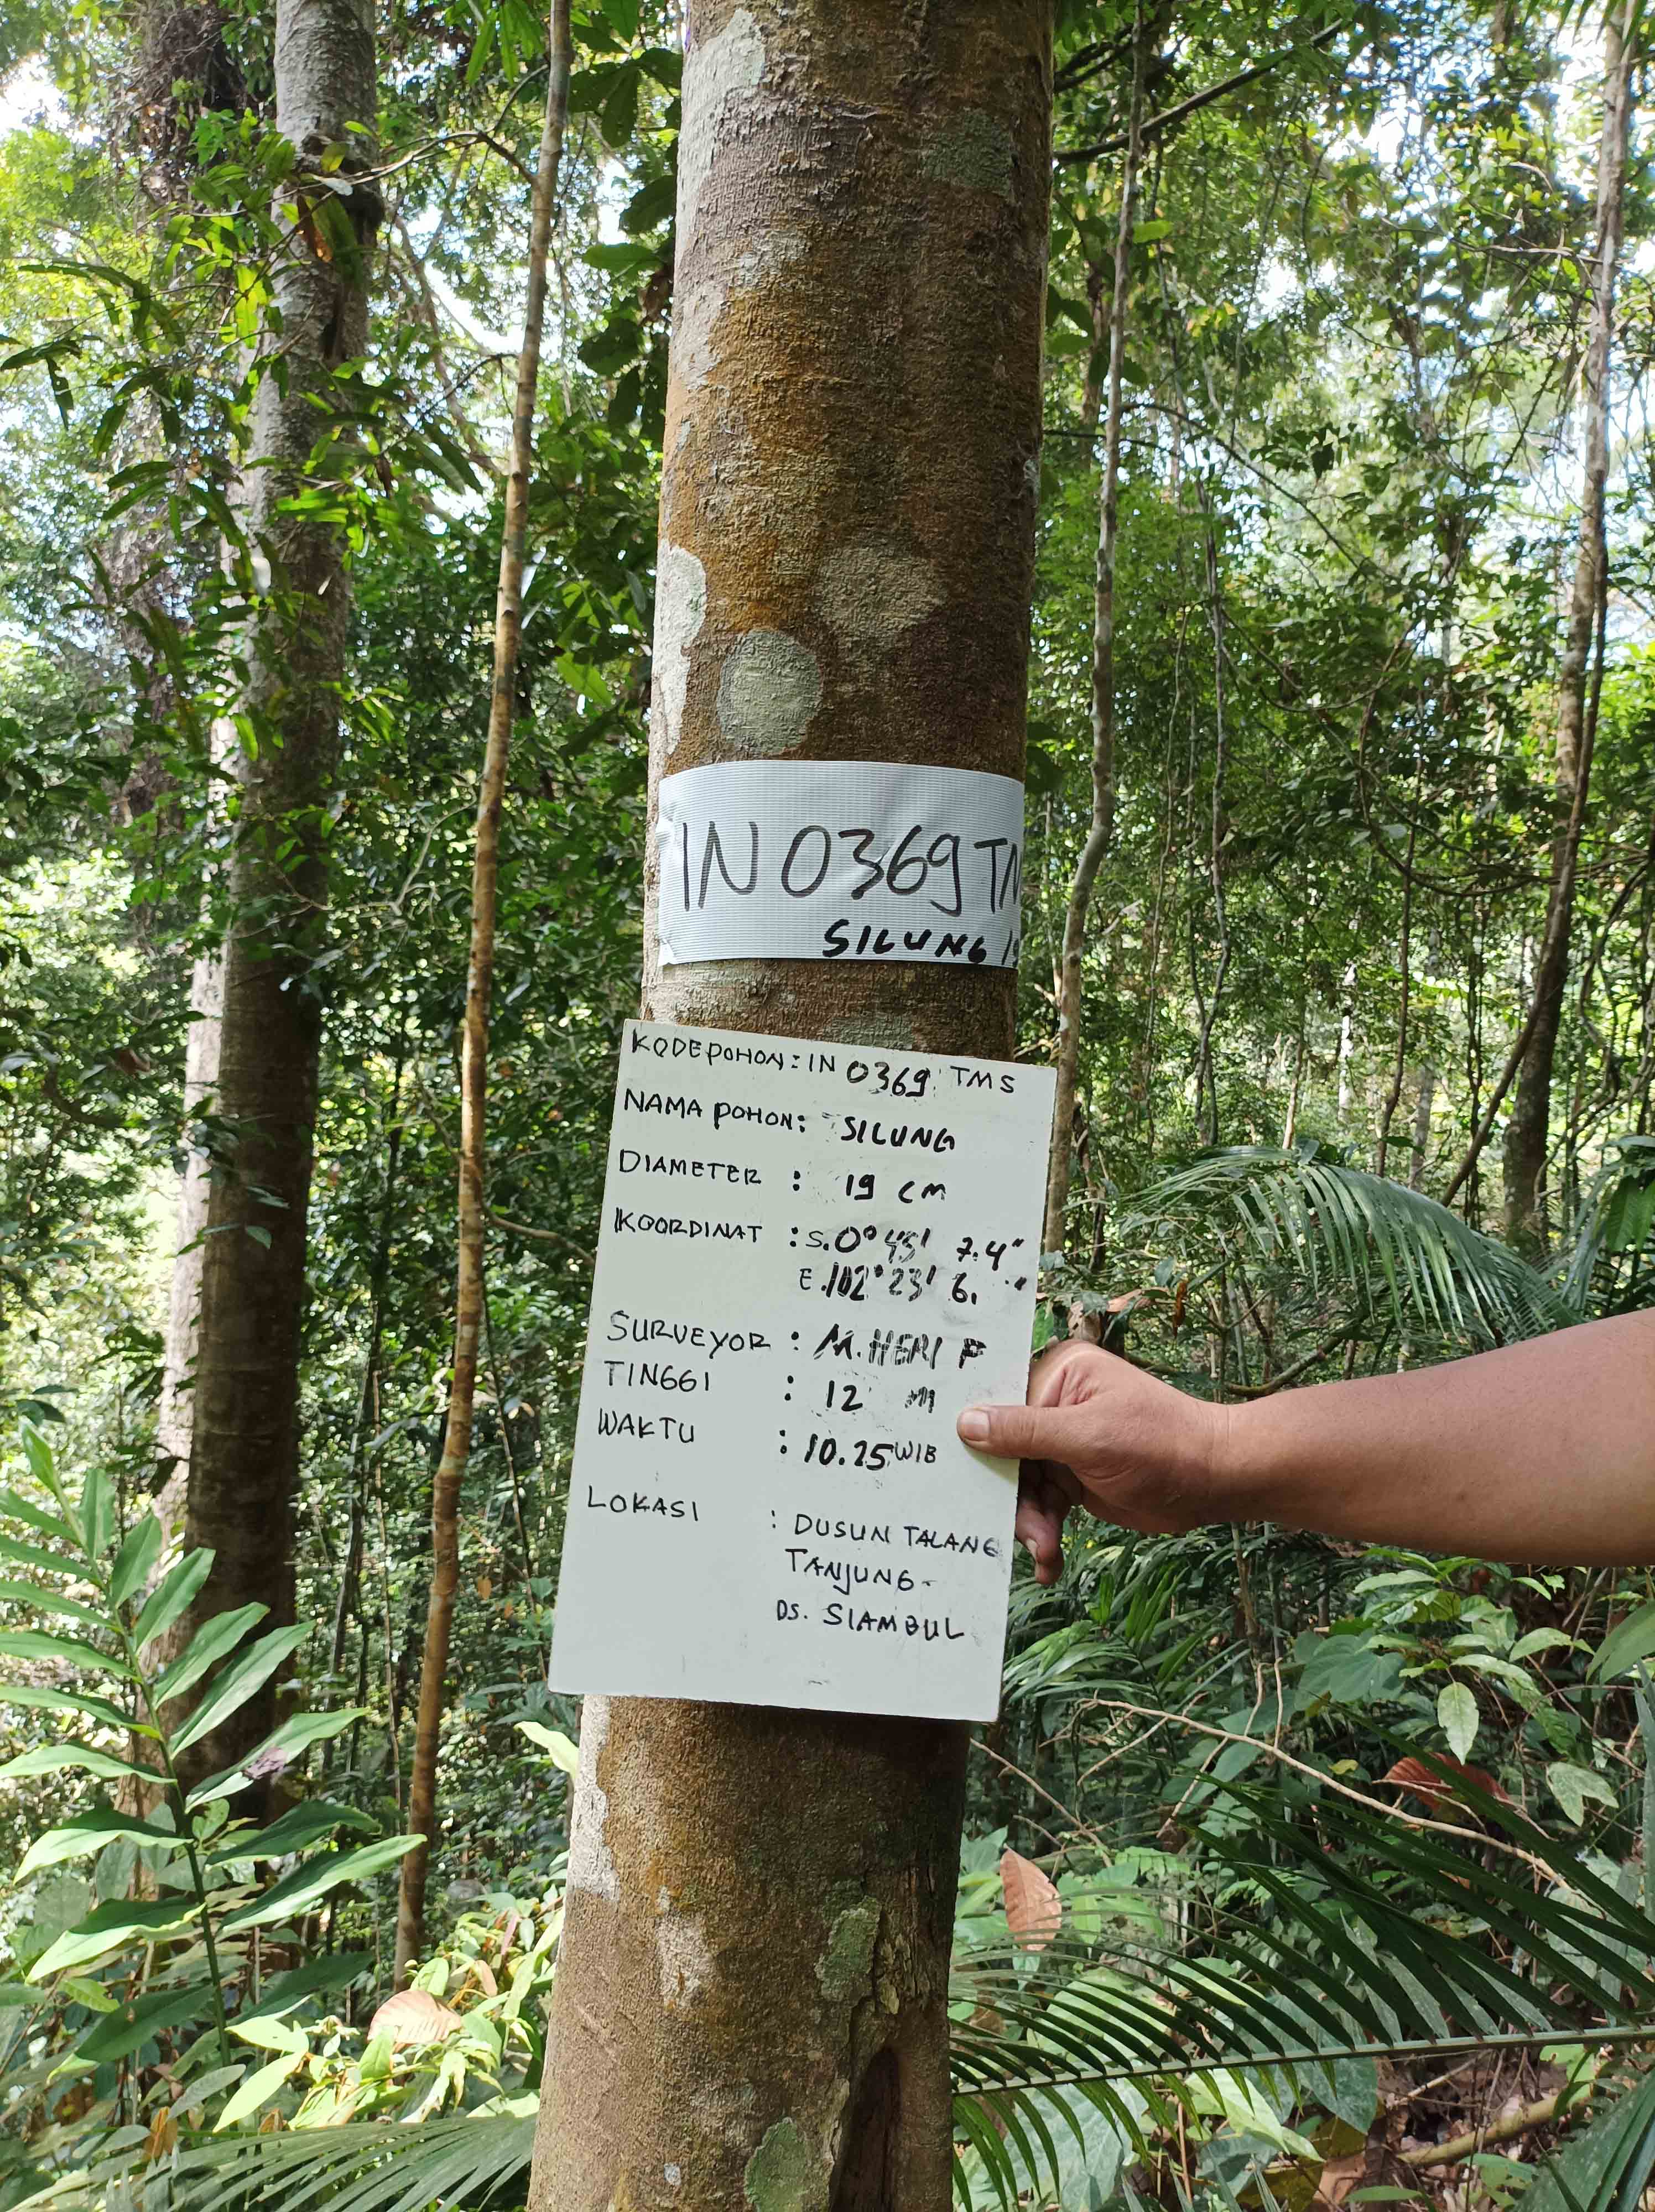 IN 0369 TM
SILUNG 19
KODE POHON : IN 0369 TMS
NAMA POHON : SILUNG
DIAMETER : 19 CM
KOORDINAT : S. 0° 45' 7.4"
E. 102° 23' 6. "
SURVEYOR : M. HERI P
TINGGI : 12 M
WAKTU : 10.25 WIB
LOKASI : DUSUN TALANG
TANJUNG -
DS. SIAMBUL